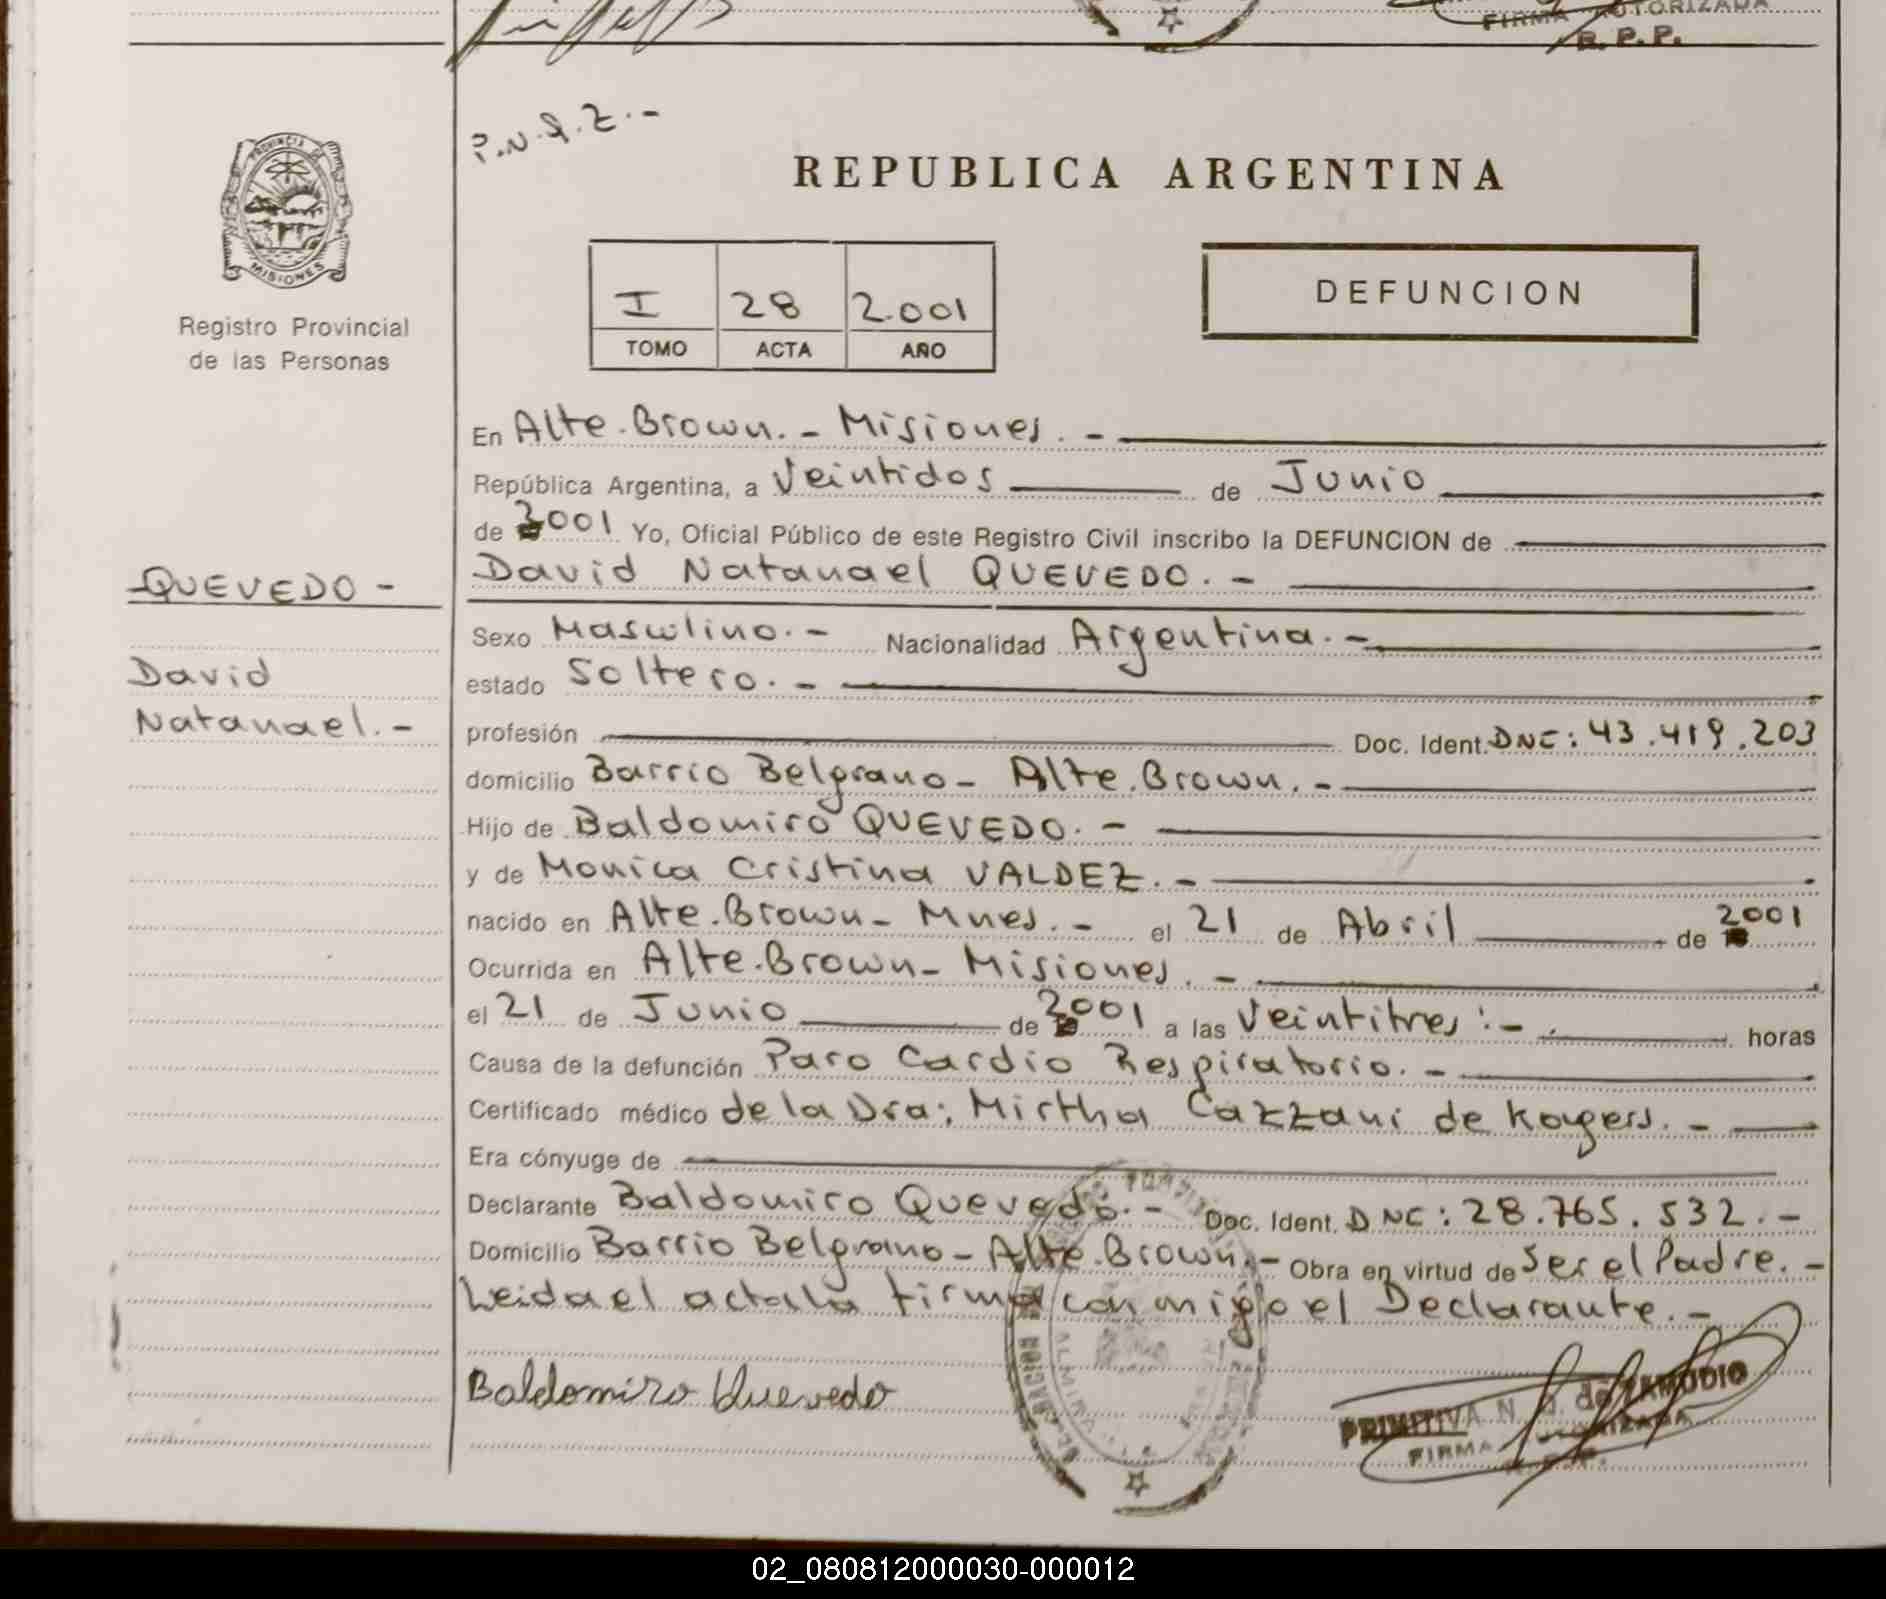 FIRMA AUTORIZADA
R. P. P.
P.N.J.Z.-
REPUBLICA ARGENTINA
PROVINCIA DE
MISIONES
Registro Provincial
de las Personas
I 28 2.001
TOMO ACTA AÑO
DEFUNCION
En Alte. Brown.- Misiones.-
República Argentina, a Veintidos de Junio
de 2001 Yo, Oficial Público de este Registro Civil inscribo la DEFUNCION de
QUEVEDO -
David Natanael QUEVEDO.-
Sexo Masculino.- Nacionalidad Argentina.-
David
estado Soltero.-
Natanael.-
profesión Doc. Ident. DNC: 43.419.203
domicilio Barrio Belgrano- Alte. Brown.-
Hijo de Baldomiro QUEVEDO.-
y de Monica Cristina VALDEZ.-
nacido en Alte. Brown- Mnes.- el 21 de Abril de 2001
Ocurrida en Alte. Brown- Misiones.-
el 21 de Junio de 2001 a las Veintitres:- horas
Causa de la defunción Paro Cardio Respiratorio.-
Certificado médico de la Dra; Mirtha Cazzani de Kogers.-
Era cónyuge de
Declarante Baldomiro Quevedo.- Doc. Ident. DNC: 28.765.532.-
Domicilio Barrio Belgrano- Alte. Brown.- Obra en virtud de Ser el Padre.-
Leida el acta la firma con migo el Declarante.-
Baldomiro Quevedo
PRIMITIVA N. J. de ZAMUDIO
FIRMA AUTORIZADA
02_080812000030-000012